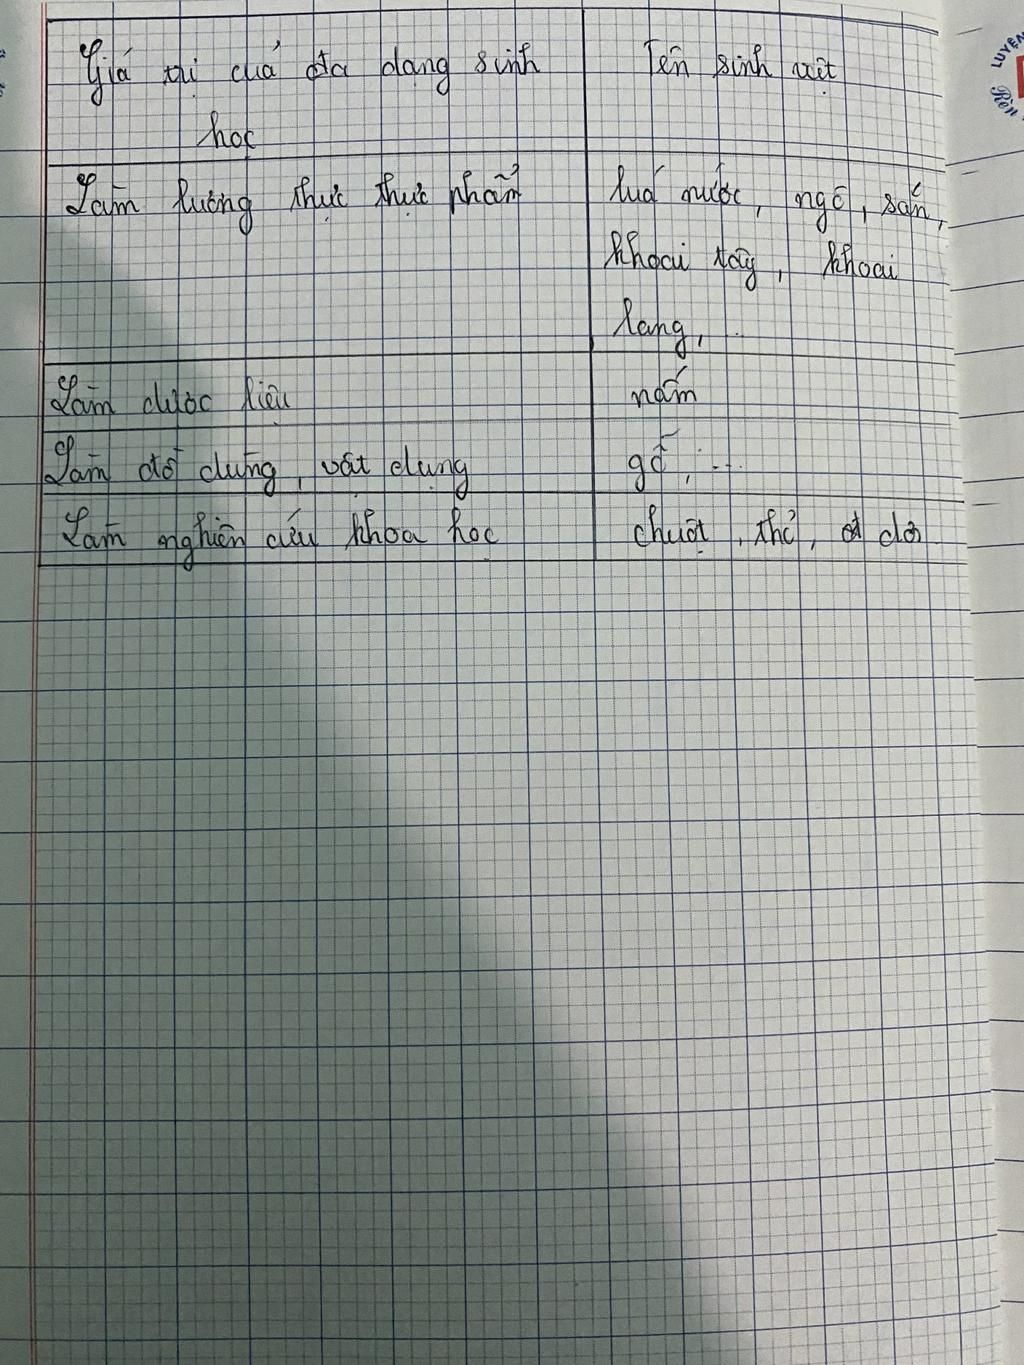 Giá trị của đa dạng sinh học
Tên sinh vật
Làm lương thực thực phẩm
luá nước, ngô, sắn,
khoai tây, khoai
lang, ...
Làm dược liệu
nấm
Làm đồ dùng, vật dụng
gỗ, ...
Làm nghiên cứu khoa học
chuột, thỏ, dơi
LUYỆN
Rèn